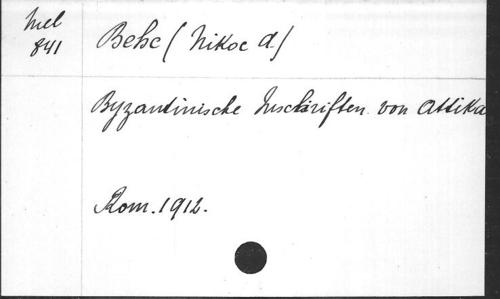 Mel
841
Behc (Nikoc d.)
Byzantinische Inschriften von Attika
Rom. 1912.